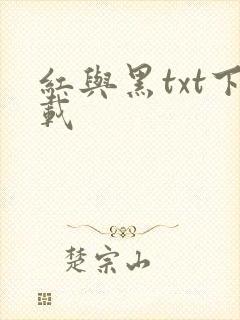 紅與黑txt下
載
楚宗山